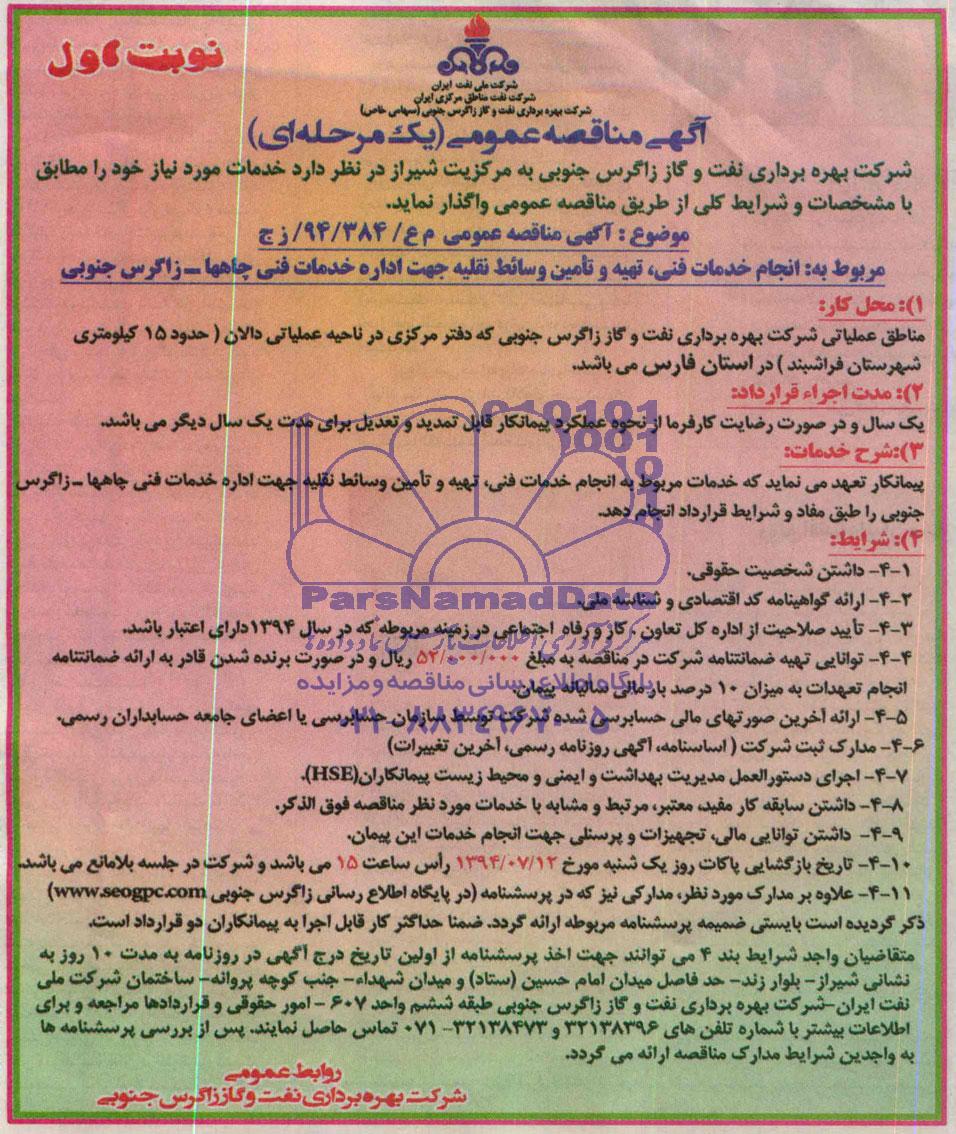 نوبت اول
شرکت ملی نفت ایران
شرکت نفت مناطق مرکزی ایران
شرکت بهره برداری نفت و گاز زاگرس جنوبی (سهامی خاص)
آگهی مناقصه عمومی (یک مرحله ای)
شرکت بهره برداری نفت و گاز زاگرس جنوبی به مرکزیت شیراز در نظر دارد خدمات مورد نیاز خود را مطابق
با مشخصات و شرایط کلی از طریق مناقصه عمومی واگذار نماید.
موضوع : آگهی مناقصه عمومی م ع/ ۹۴/۳۸۴/ ز ج
مربوط به: انجام خدمات فنی، تهیه و تأمین وسائط نقلیه جهت اداره خدمات فنی چاهها ــ زاگرس جنوبی
۱): محل کار:
مناطق عملیاتی شرکت بهره برداری نفت و گاز زاگرس جنوبی که دفتر مرکزی در ناحیه عملیاتی دالان ( حدود ۱۵ کیلومتری
شهرستان فراشبند ) در استان فارس می باشد.
۲): مدت اجراء قرارداد:
یک سال و در صورت رضایت کارفرما از نحوه عملکرد پیمانکار قابل تمدید و تعدیل برای مدت یک سال دیگر می باشد.
۳):شرح خدمات:
پیمانکار تعهد می نماید که خدمات مربوط به انجام خدمات فنی، تهیه و تأمین وسائط نقلیه جهت اداره خدمات فنی چاهها ــ زاگرس
جنوبی را طبق مفاد و شرایط قرارداد انجام دهد.
۴): شرایط:
۴-۱- داشتن شخصیت حقوقی.
۴-۲- ارائه گواهینامه کد اقتصادی و شناسه ملی.
۴-۳- تأیید صلاحیت از اداره کل تعاون ، کار و رفاه اجتماعی در زمینه مربوطه که در سال ۱۳۹۴ دارای اعتبار باشد.
۴-۴- توانایی تهیه ضمانتنامه شرکت در مناقصه به مبلغ ۵۲/۰۰۰/۰۰۰ ریال و در صورت برنده شدن قادر به ارائه ضمانتنامه
انجام تعهدات به میزان ۱۰ درصد بار مالی سالیانه پیمان.
۴-۵- ارائه آخرین صورتهای مالی حسابرسی شده شرکت توسط سازمان حسابرسی یا اعضای جامعه حسابداران رسمی.
۴-۶- مدارک ثبت شرکت ( اساسنامه، آگهی روزنامه رسمی، آخرین تغییرات)
۴-۷- اجرای دستورالعمل مدیریت بهداشت و ایمنی و محیط زیست پیمانکاران(HSE).
۴-۸- داشتن سابقه کار مفید، معتبر، مرتبط و مشابه با خدمات مورد نظر مناقصه فوق الذکر.
۴-۹- داشتن توانایی مالی، تجهیزات و پرسنلی جهت انجام خدمات این پیمان.
۴-۱۰- تاریخ بازگشایی پاکات روز یک شنبه مورخ ۱۳۹۴/۰۷/۱۲ رأس ساعت ۱۵ می باشد و شرکت در جلسه بلامانع می باشد.
۴-۱۱- علاوه بر مدارک مورد نظر، مدارکی نیز که در پرسشنامه (در پایگاه اطلاع رسانی زاگرس جنوبی www.seogpc.com)
ذکر گردیده است بایستی ضمیمه پرسشنامه مربوطه ارائه گردد. ضمنا حداکثر کار قابل اجرا به پیمانکاران دو قرارداد است.
متقاضیان واجد شرایط بند ۴ می توانند جهت اخذ پرسشنامه از اولین تاریخ درج آگهی در روزنامه به مدت ۱۰ روز به
نشانی شیراز- بلوار زند- حد فاصل میدان امام حسین (ستاد) و میدان شهداء- جنب کوچه پروانه- ساختمان شرکت ملی
نفت ایران-شرکت بهره برداری نفت و گاز زاگرس جنوبی طبقه ششم واحد ۶۰۷ - امور حقوقی و قراردادها مراجعه و برای
اطلاعات بیشتر با شماره تلفن های ۳۲۱۳۸۳۹۶ و ۳۲۱۳۸۴۷۳- ۰۷۱ تماس حاصل نمایند. پس از بررسی پرسشنامه ها
به واجدین شرایط مدارک مناقصه ارائه می گردد.
روابط عمومی
شرکت بهره برداری نفت و گاز زاگرس جنوبی
ParsNamadData
مرکز فرآوری اطلاعات پارس نماد داده ها
پایگاه اطلاع رسانی مناقصه و مزایده
۰۲۱-۸۸۳۴۹۶۷۰-۵